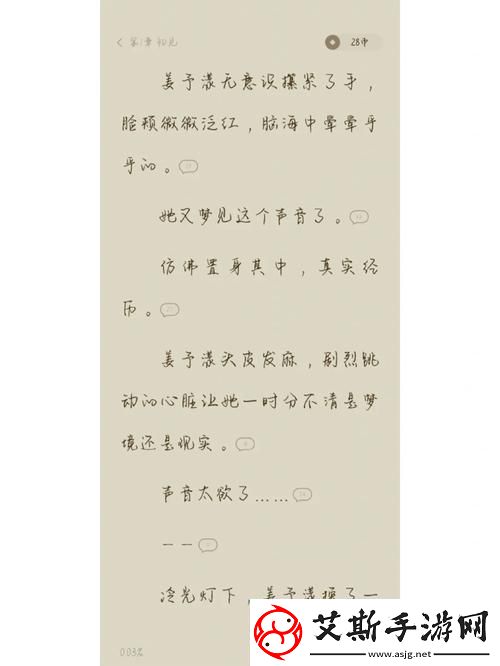 第1章 初见
28币
姜予漾无意识攥紧了手，
脸颊微微泛红，脑海中晕晕乎
乎的。
她又梦见这个声音了。
仿佛置身其中，真实经
历。
姜予漾头皮发麻，剧烈跳
动的心脏让她一时分不清是梦
境还是现实。
声音太欲了……
——
冷光灯下，姜予漾换了一
0.03%
艾斯手游网
www.asjg.net